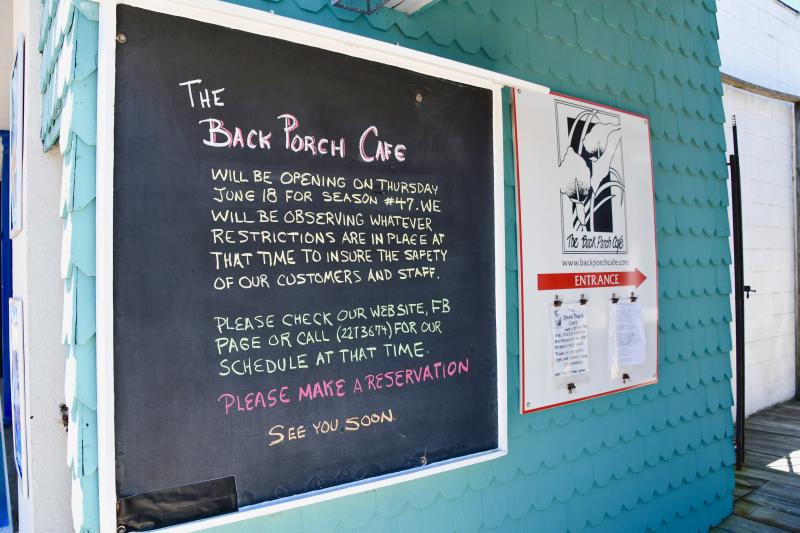 The
Back Porch Cafe
WILL BE OPENING ON THURSDAY
JUNE 18 FOR SEASON #47. WE
WILL BE OBSERVING WHATEVER
RESTRICTIONS ARE IN PLACE AT
THAT TIME TO INSURE THE SAFETY
OF OUR CUSTOMERS AND STAFF.
PLEASE CHECK OUR WEBSITE, FB
PAGE OR CALL (2273674) FOR OUR
SCHEDULE AT THAT TIME.
PLEASE MAKE A RESERVATION
SEE YOU SOON.
The Back Porch Café
www.backporchcafe.com
ENTRANCE
THE
BACK PORCH
CAFE